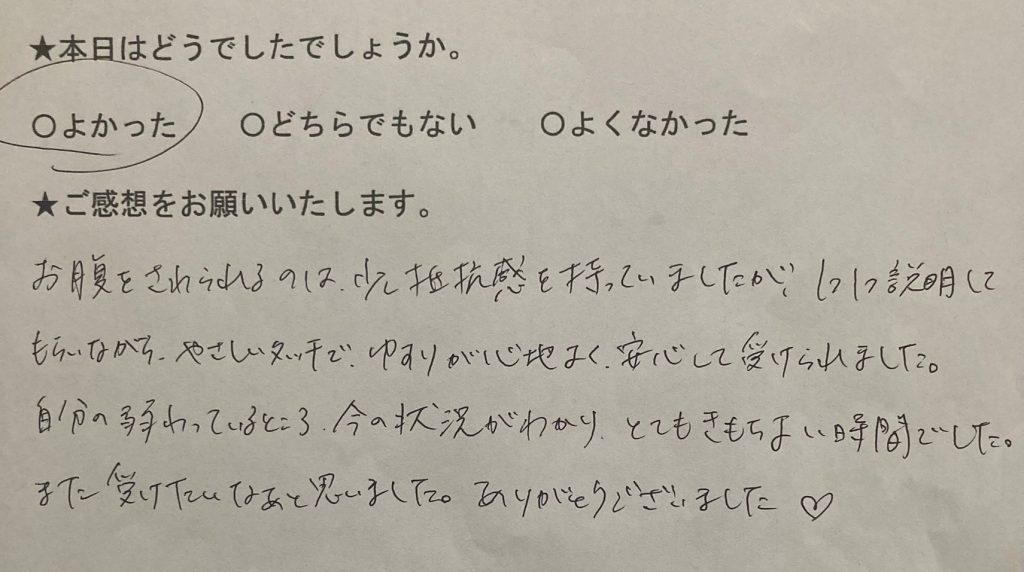 ★本日はどうでしたでしょうか。
○よかった ○どちらでもない ○よくなかった
★ご感想をお願いいたします。
お腹をさわられるのは、少し抵抗感を持っていましたが、1つ1つ説明して
もらいながら、やさしいタッチで、ゆすりが心地よく、安心して受けられました。
自分の弱わっているところ、今の状況がわかり、とてもきもちよい時間でした。
また受けたいなあと思いました。ありがとうございました♡